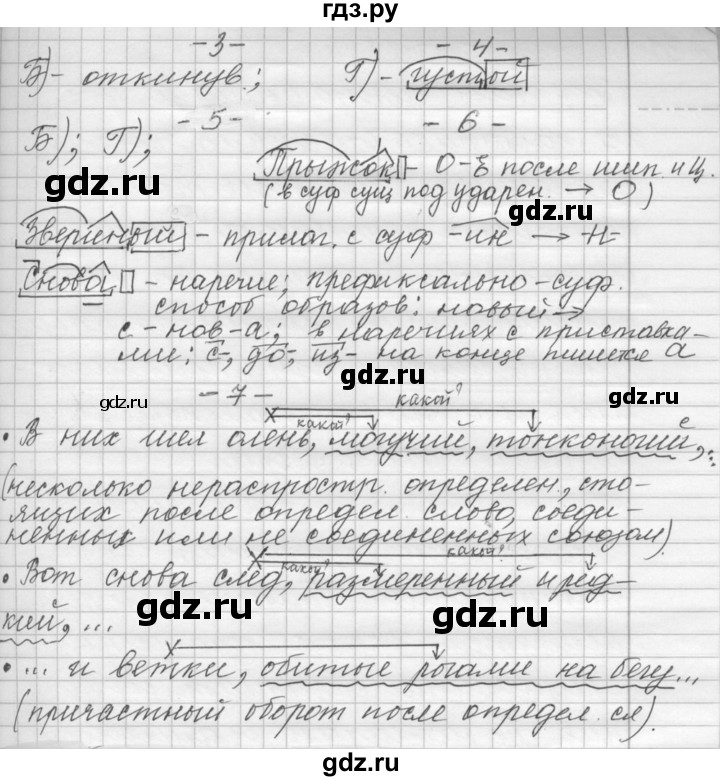 гдз.ру
-3-
-4-
Б)- откинув;
Г)- густой
-5-
-6-
Б); Г);
Прыжок - О-Ё после шип и Ц.
(в суф сущ под ударен. → О)
gdz.ru
Звериный - прилаг. с суф -ин → -н-
Снова - наречие; префиксально-суф.
способ образов: новый →
с-нов-а; в наречиях с приставка-
ми: с-, до-, из- на конце пишется а
gdz.ru
-7-
gdz.ru
gdz.ru
какой?
какой?
• В них шел олень, могучий, тонконогий,
(несколько нераспростр. определен., сто-
ящих после определ. слово, соеди-
ненных или не соединенных союзом).
какой?
какой?
• Вот снова след, размеренный и ред-
gdz.ru
gdz.ru
кий, ...
• ... и ветки, обитые рогами на бегу...
(причастный оборот после определ. сл).
gdz.ru
gdz.ru